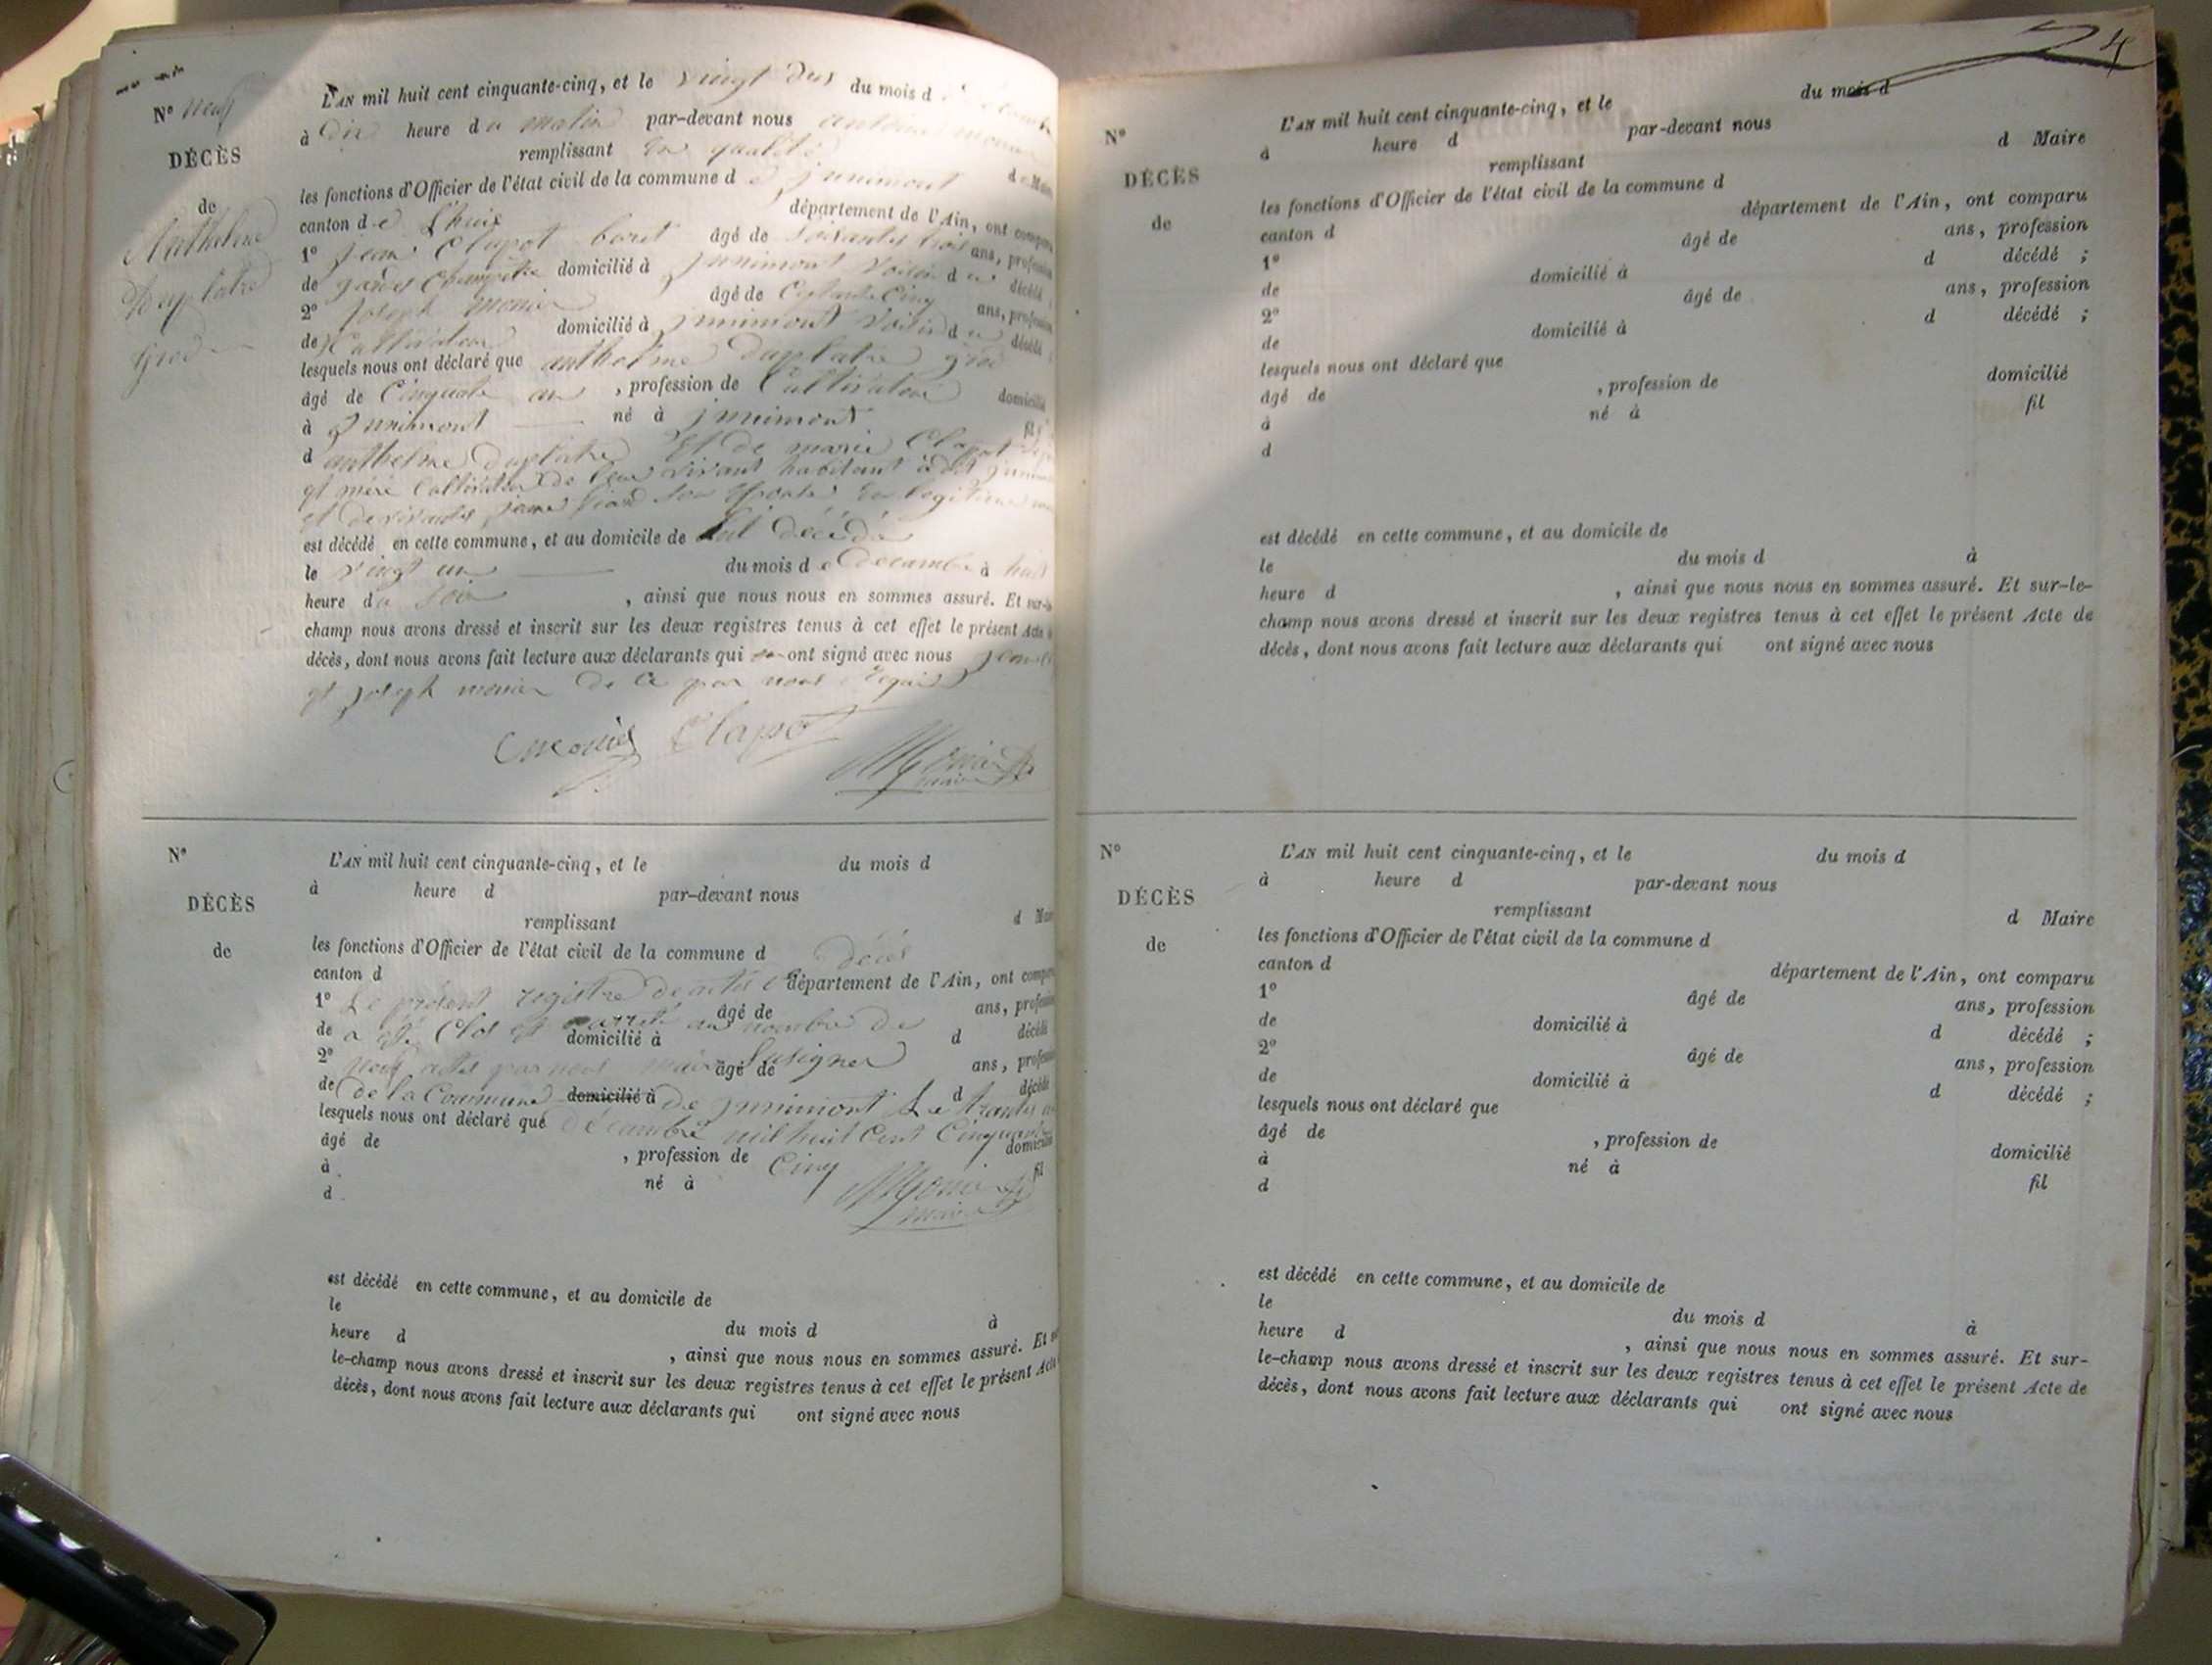 N° neuf
DÉCÈS
de
Anthelme
Duplatre
L'AN mil huit cent cinquante-cinq, et le vingt dus du mois d
à Dix heure du matin par-devant nous antoine
remplissant En qualité de Maire
les fonctions d'Officier de l'état civil de la commune de junimont
canton de L'huis département de l'Ain, ont comparu
1° jean Clapot âgé de soixante trois ans, profession
de garde Champetre domicilié à junimont voisin du décédé ;
2° Joseph monier âgé de ans, profession
de Cultivateur domicilié à junimont voisin du décédé
lesquels nous ont déclaré que anthelme Duplatre
âgé de Cinquante , profession de Cultivateur domicilié
à junimont né à junimont fils
d anthelme Duplatre Et de marie Clapot
et mère Cultivateur de leur vivant habitant
est décédé en cette commune, et au domicile de
le vingt un du mois de Decembre à huit
heure du soir , ainsi que nous nous en sommes assuré. Et sur-le-
champ nous avons dressé et inscrit sur les deux registres tenus à cet effet le présent Acte
décès, dont nous avons fait lecture aux déclarants qui ont signé avec nous
et joseph monier De Ce par nous Requis
monier Clapot
Monier
maire
N°
DÉCÈS
de
L'AN mil huit cent cinquante-cinq, et le du mois d
à heure d par-devant nous
remplissant d Maire
les fonctions d'Officier de l'état civil de la commune d
canton d département de l'Ain, ont comparu
décès
1° âgé de ans, profession
Le présent registre de actes
de domicilié à d décédé
a été Clos et arrété au nombre de
2° âgé de ans, profession
neuf actes par nous maire Susigner
de domicilié à d décédé
de la Commune de junimont Le trante
lesquels nous ont déclaré que
Décambre mil huit Cent Cinquante
âgé de , profession de domicilié
Cinq
à né à fil
d
Monier
maire
est décédé en cette commune, et au domicile de
le du mois d à
heure d , ainsi que nous nous en sommes assuré. Et
le-champ nous avons dressé et inscrit sur les deux registres tenus à cet effet le présent Acte
décès, dont nous avons fait lecture aux déclarants qui ont signé avec nous
24
N°
DÉCÈS
de
L'AN mil huit cent cinquante-cinq, et le du mois d
à heure d par-devant nous
remplissant d Maire
les fonctions d'Officier de l'état civil de la commune d
canton d département de l'Ain, ont comparu
1° âgé de ans, profession
de domicilié à d décédé ;
2° âgé de ans, profession
de domicilié à d décédé ;
lesquels nous ont déclaré que
âgé de , profession de domicilié
à né à fil
d
est décédé en cette commune, et au domicile de
le du mois d à
heure d , ainsi que nous nous en sommes assuré. Et sur-le-
champ nous avons dressé et inscrit sur les deux registres tenus à cet effet le présent Acte de
décès, dont nous avons fait lecture aux déclarants qui ont signé avec nous
N°
DÉCÈS
de
L'AN mil huit cent cinquante-cinq, et le du mois d
à heure d par-devant nous
remplissant d Maire
les fonctions d'Officier de l'état civil de la commune d
canton d département de l'Ain, ont comparu
1° âgé de ans, profession
de domicilié à d décédé ;
2° âgé de ans, profession
de domicilié à d décédé ;
lesquels nous ont déclaré que
âgé de , profession de
à né à domicilié
d fil
est décédé en cette commune, et au domicile de
le du mois d à
heure d , ainsi que nous nous en sommes assuré. Et sur-
le-champ nous avons dressé et inscrit sur les deux registres tenus à cet effet le présent Acte de
décès, dont nous avons fait lecture aux déclarants qui ont signé avec nous